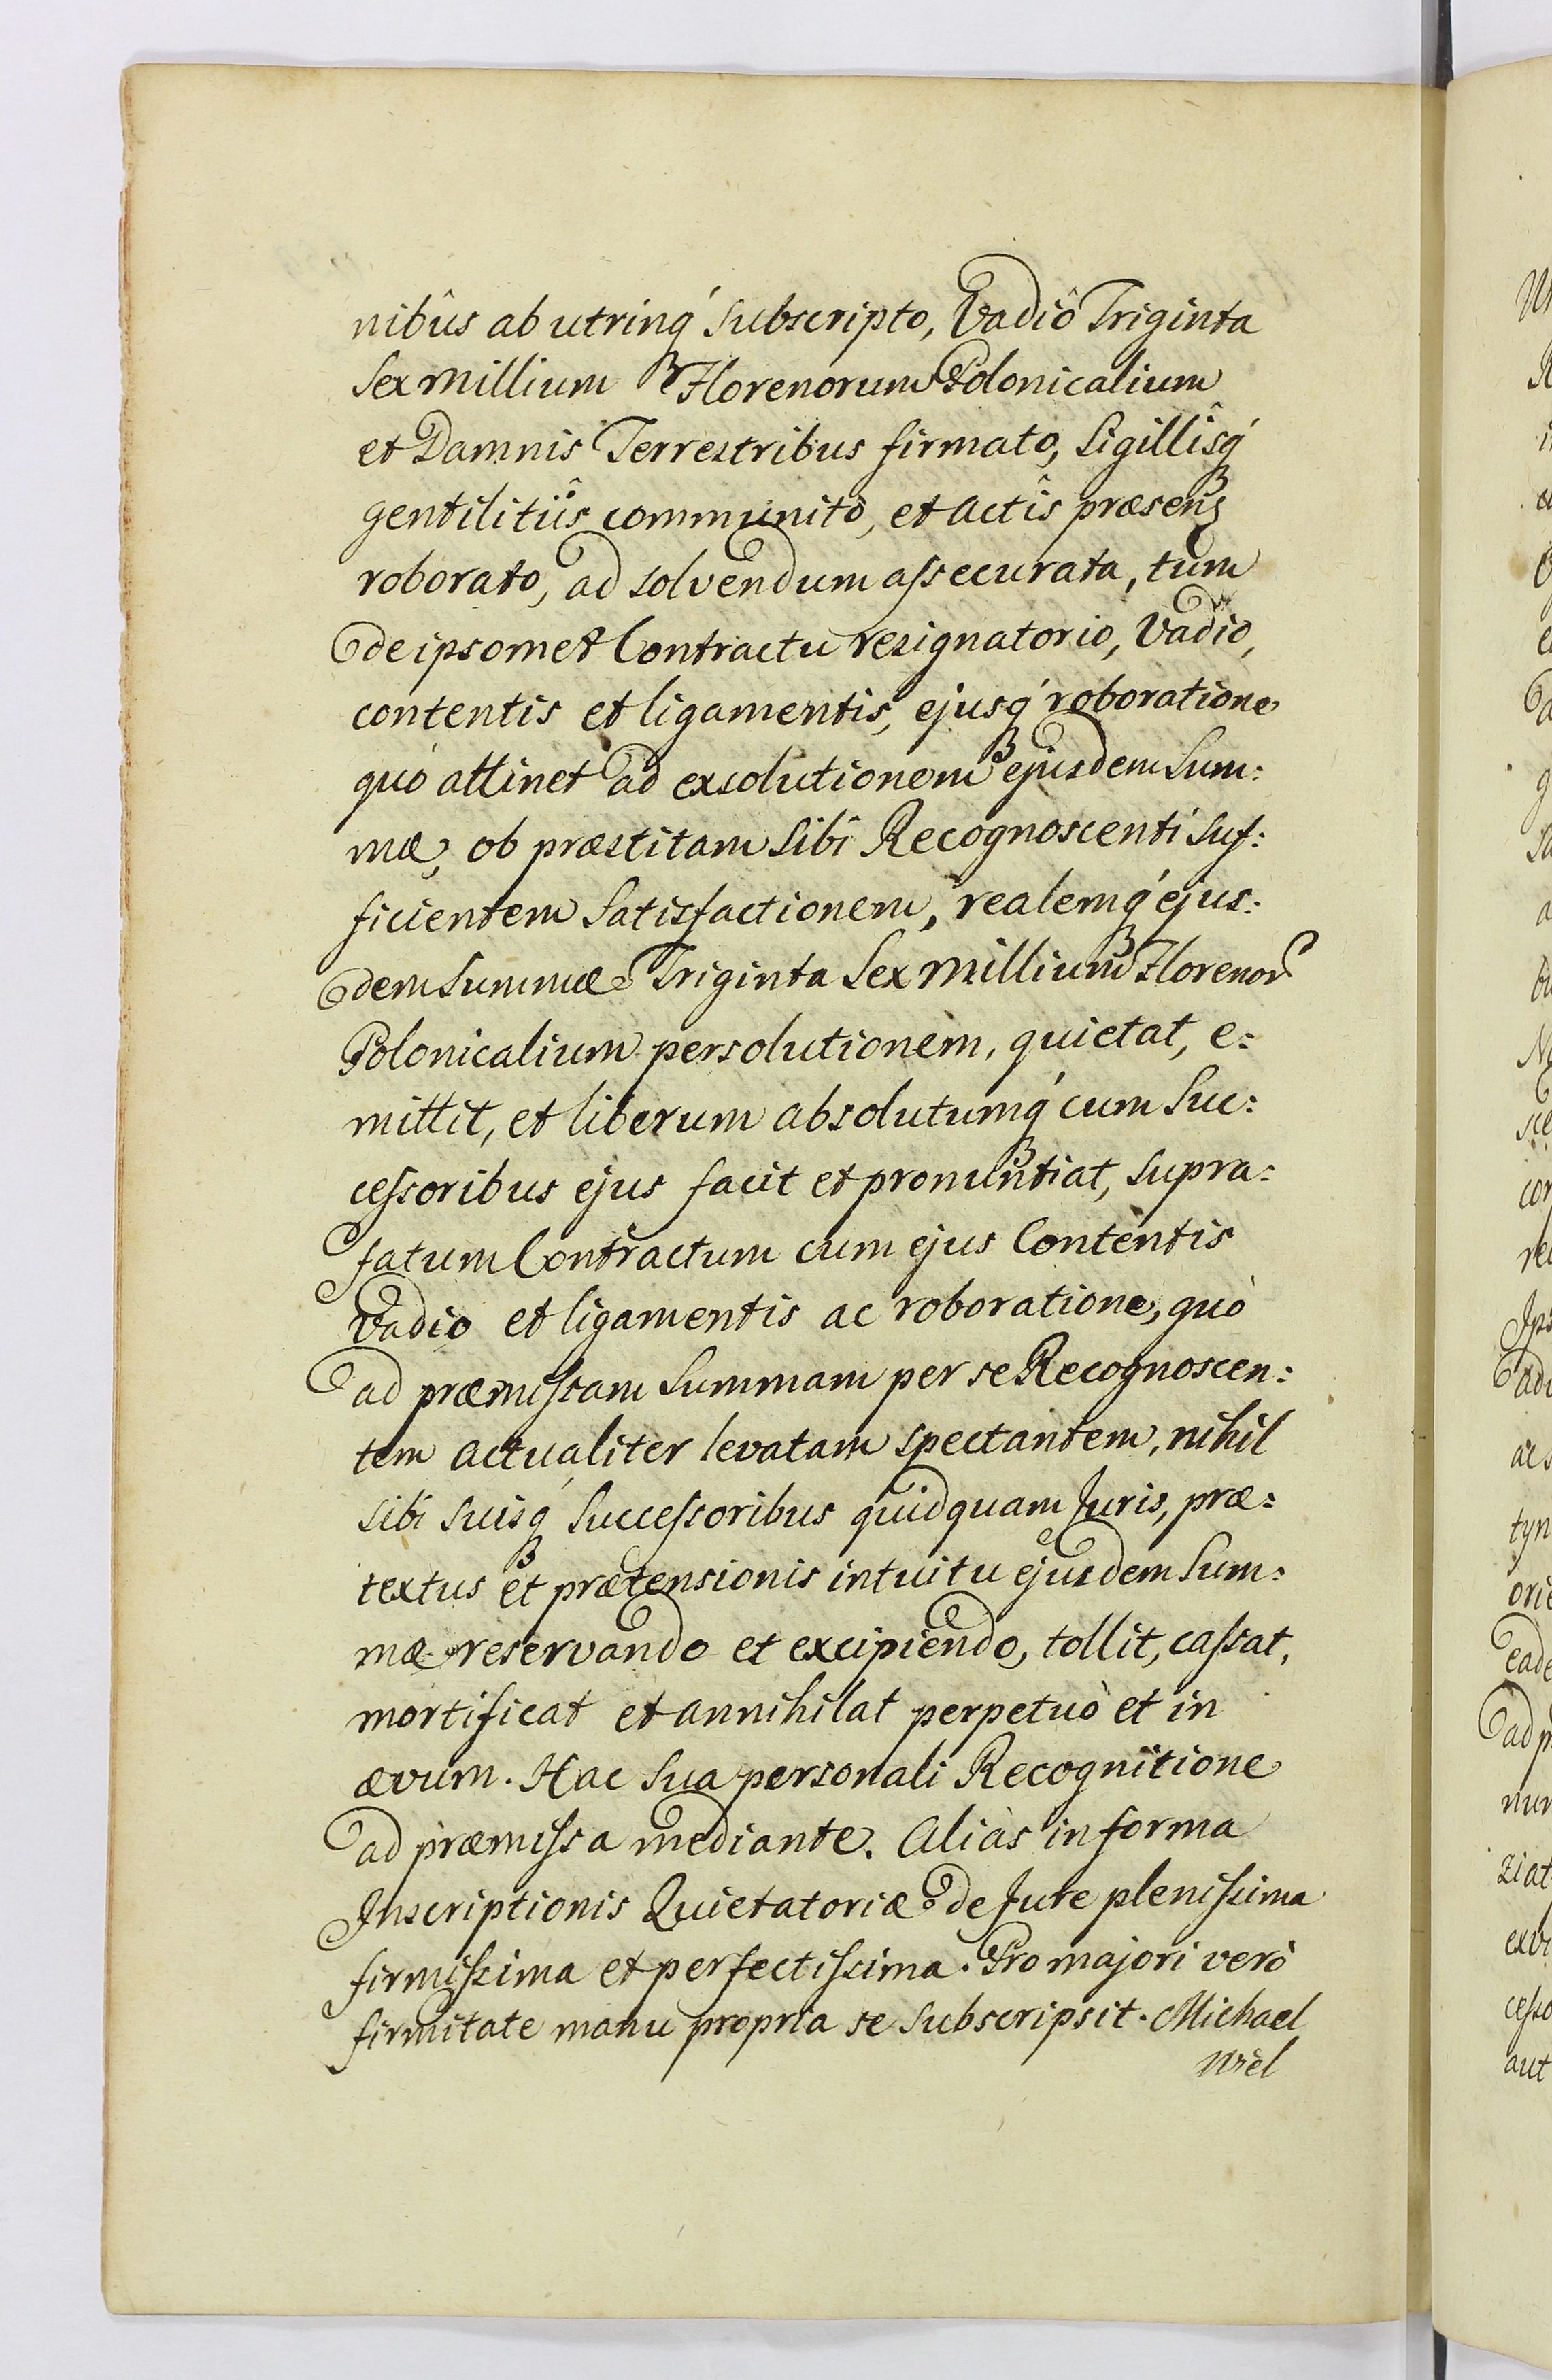 nibûs ab utrinq́ subscripto, Vadiô Triginta
Sex millium Florenorum Polonicalium
et Damnis Terrestribus firmato, Sigillîsq́
gentilitiîs communito, et actîs præsenz
roborato, ad solvendum assecurata, tum
de ipsomet Contractu resignatorio, Vadio,
contentis et ligamentis, ejusq́ roboratione
quò attinet ad exsolutionem ejusdem Sum:
mæ, ob præstitam Sibi Recognoscenti Suf:
ficientem Satisfactionem, realemq́ ejus:
dem Summæ Triginta Sex millium Florenor
Polonicalium persolutionem, quietat, e:
mittit, et liberum absolutumq́ cum Suc:
cessoribus ejus facit et pronuntiat, supra:
fatum Contractum cum ejus Contentis
Vadio et ligamentis ac roboratione, quò
ad præmissam Summam per se Recognoscen:
tem actualiter levatam spectantem, nihil
sibi suisq́ Successoribus quidquam Juris, præ:
textus et prætensionis intuitu ejusdem Sum:
mæ reservando et excipiendo, tollit, cassat,
mortificat et annihilat perpetuò et in
ævum. Hac Sua personali Recognitione
ad præmissa mediante. Aliàs in forma
Inscriptionis Quietatoriæ de Jure plenissima
firmissima et perfectissima. Pro majori verò
firmitate manu propria se subscripsit. Michael
Wiel